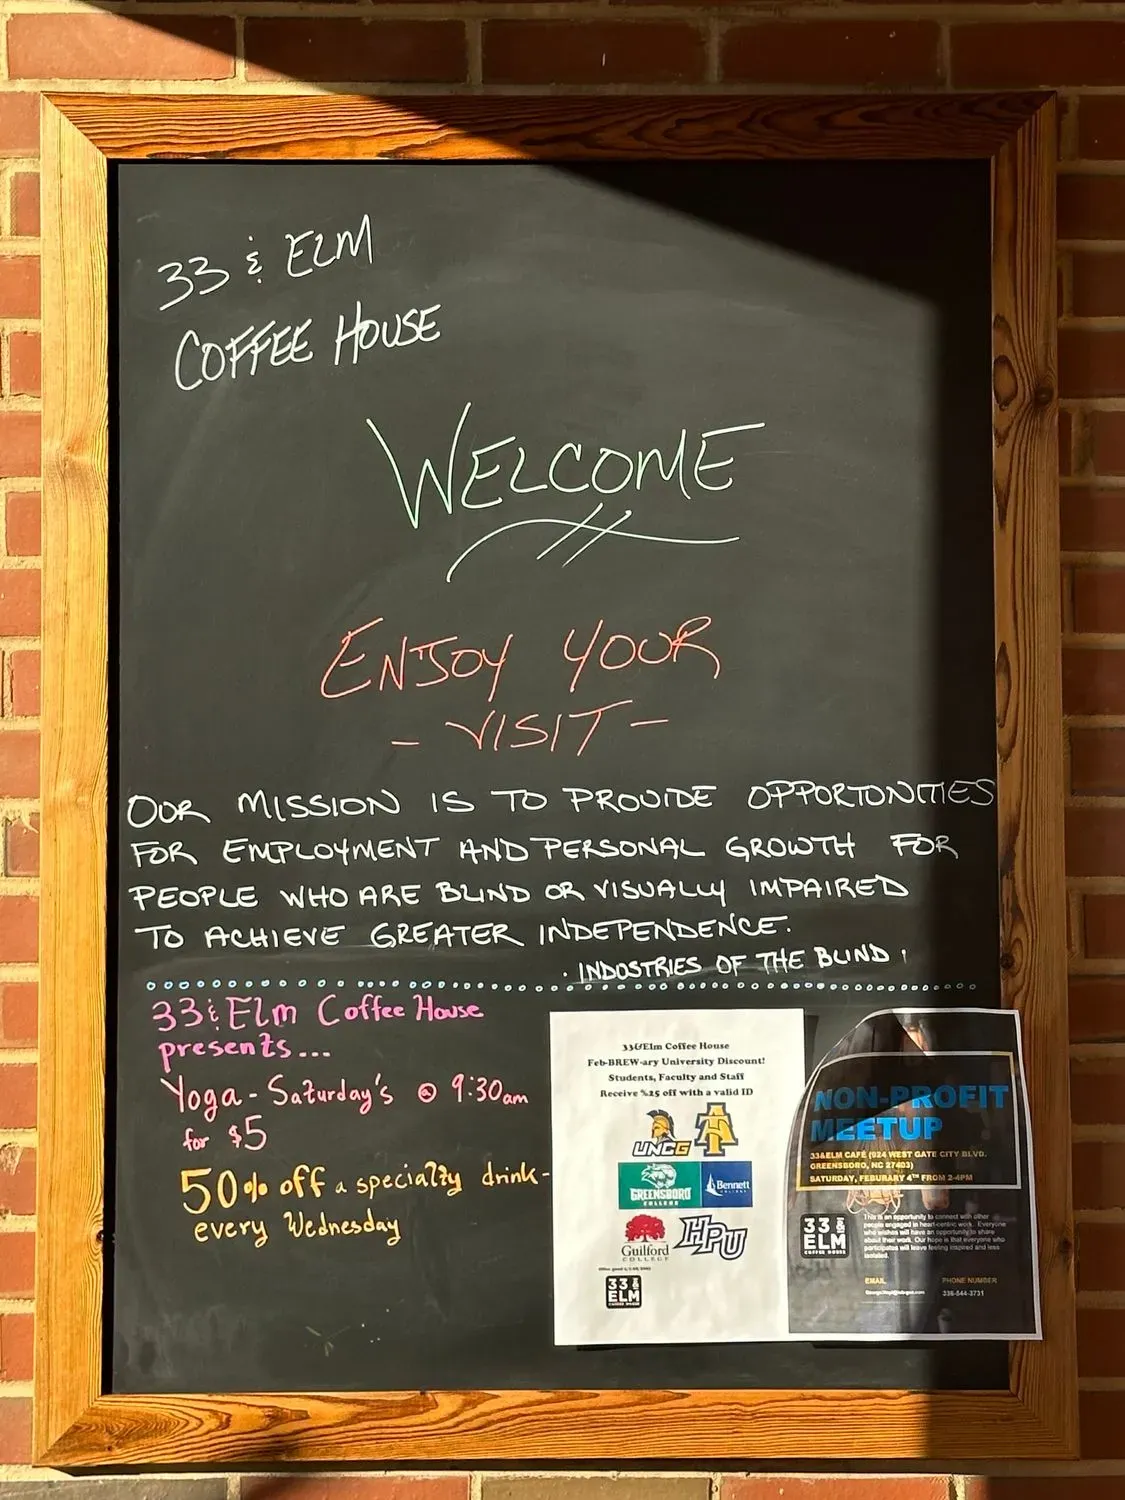 33 & ELM
COFFEE HOUSE
WELCOME
ENJOY YOUR
- VISIT -
OUR MISSION IS TO PROVIDE OPPORTUNITIES
FOR EMPLOYMENT AND PERSONAL GROWTH FOR
PEOPLE WHO ARE BLIND OR VISUALLY IMPAIRED
TO ACHIEVE GREATER INDEPENDENCE.
· INDUSTRIES OF THE BLIND ·
33 & Elm Coffee House
presents...
Yoga - Saturday's @ 9:30am
for $5
50% off a specialty drink -
every Wednesday
33&Elm Coffee House
Feb-BREW-ary University Discount!
Students, Faculty and Staff
Receive %25 off with a valid ID
UNCG
AT
GREENSBORO
COLLEGE
Bennett
COLLEGE
Guilford
COLLEGE
HPU
33 &
ELM
COFFEE HOUSE
NON-PROFIT
MEETUP
33&ELM CAFÉ (924 WEST GATE CITY BLVD.
GREENSBORO, NC 27403)
SATURDAY, FEBURARY 4TH FROM 2-4PM
33 &
ELM
COFFEE HOUSE
This is an opportunity to connect with other
people engaged in heart-centric work. Everyone
who wishes will have an opportunity to share
about their work. Our hope is that everyone who
participates will leave feeling inspired and less
isolated.
EMAIL
PHONE NUMBER
336-544-3731